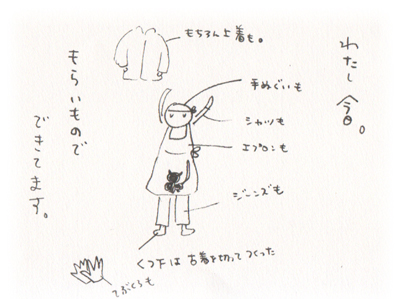 わたし今日。
もちろん上着も。
手ぬぐいも
シャツも
エプロンも
ジーンズも
くつ下は古着を切ってつくった
てぶくろも
もらいもので
できてます。